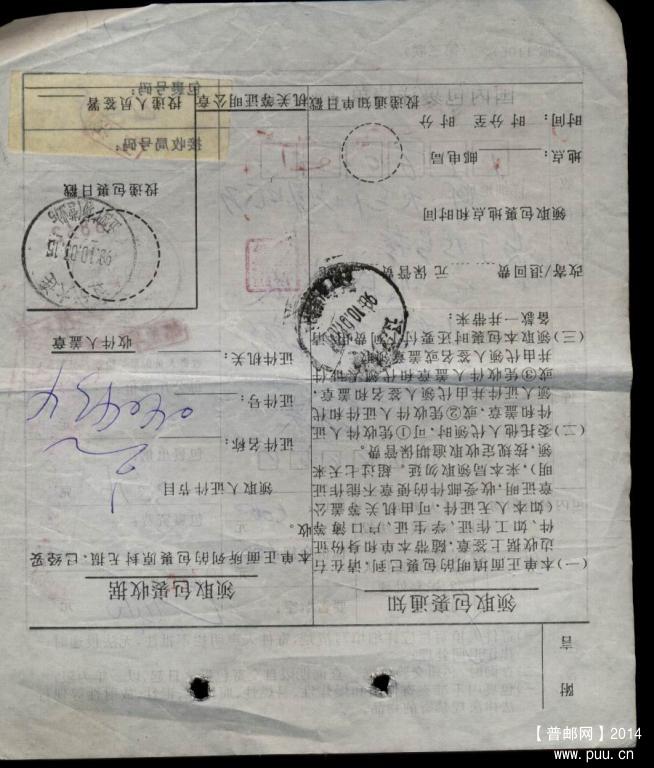 附
言
领取包裹通知
(一)本单正面填明的包裹已到,请在右
边收据上签章,随带本单和身份证
件、如工作证、学生证、户口簿等
(如本人无证件,可由机关等盖公
章证明,收受邮件的便章不能作证
明),来本局领取勿延。超过七天来
领,按规定收取逾期保管费。
(二)委托他人代领时,可①凭收件人证
件和盖章,或②凭收件人证件和代
领人证件并由代领人签名和盖章,
或③凭收件人盖章和代领人证件
并由代领人签名或盖章领取。
(三)领取本包裹时还要付下列费用,请
备款一并带来:
改寄/退回费…… 元 保管费
领取包裹地点和时间
地点: 邮电局
时间: 时 分至 时 分
投递通知单日戳
领取包裹收据
本单正面所列的包裹原封无损,已经妥
收。
领取人证件节目
证件名称:
证件号:
040434
证件机关:
收件人盖章
98.10.03.15
98.10.0
投递包裹日戳
接收局号码:
投递人员签署
包裹号码:
机关等证明公章
【普邮网】2014
www.puu.cn